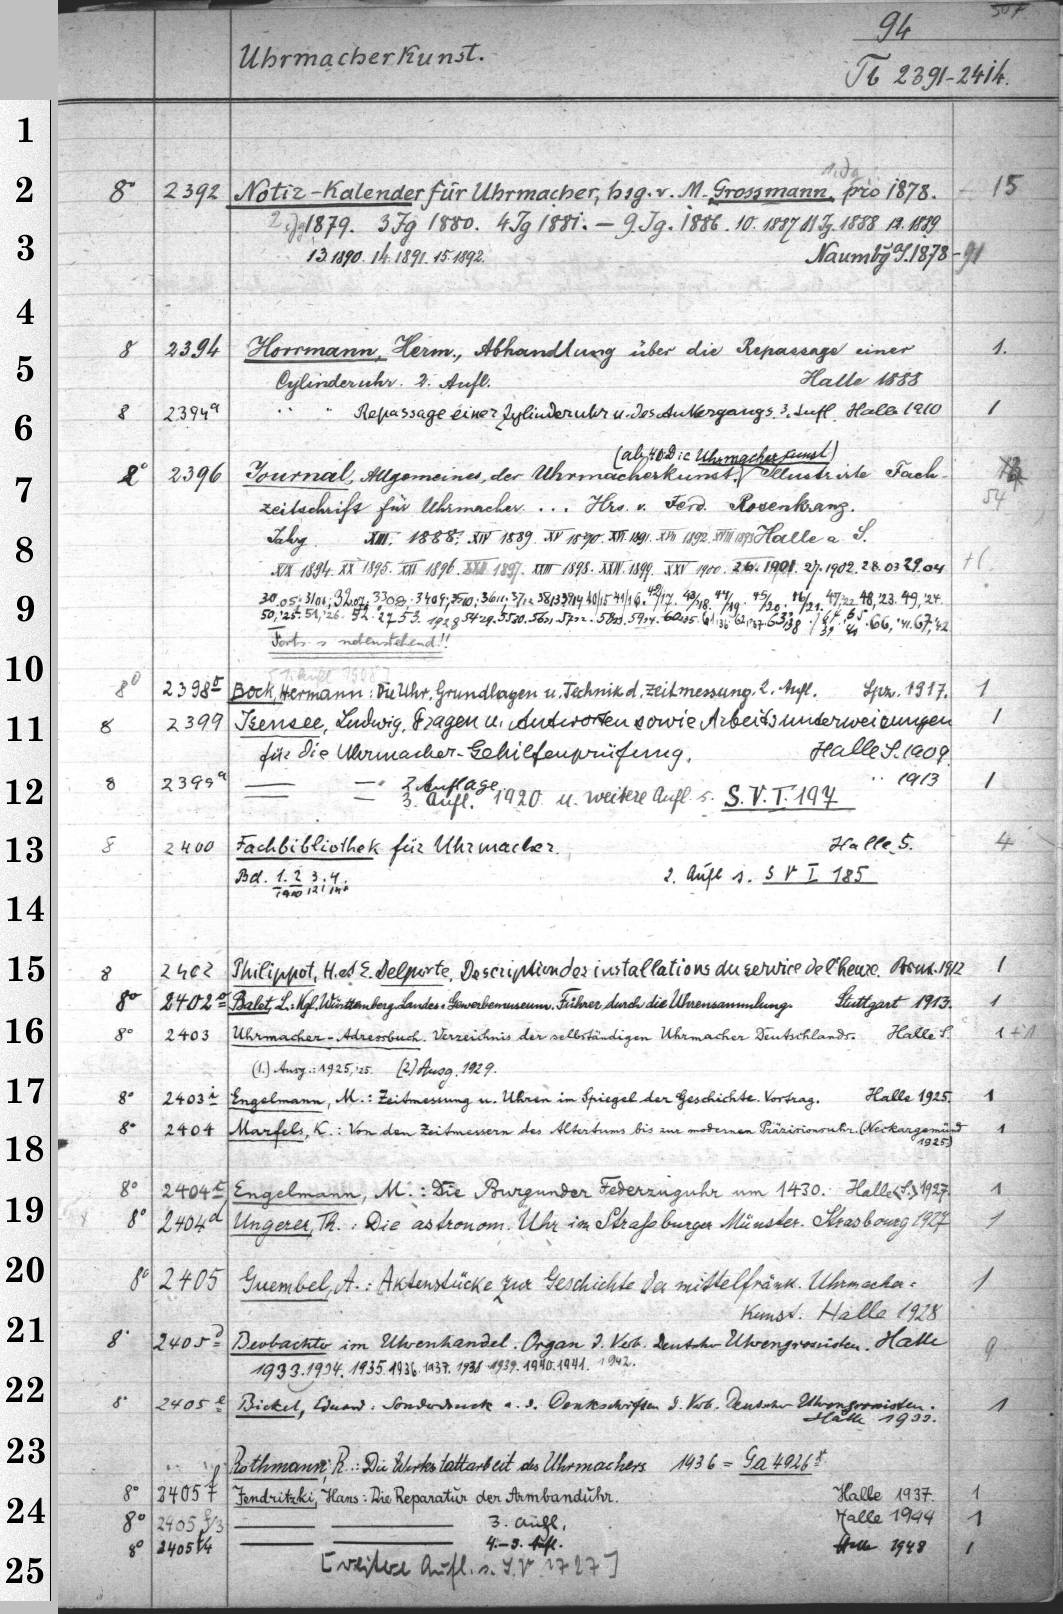 94
Uhrmacherkunst.
Tb 2391-2414.
1
2 8° 2392 Notiz-Kalender für Uhrmacher, hsg. v. M. Grossmann, pro 1878. 15
2. Jg 1879. 3 Jg 1880. 4 Jg 1881. — 9. Jg. 1886. 10. 1887 11 Jg. 1888 12. 1889
3 13. 1890. 14. 1891. 15. 1892. Naumbg S. 1878-91
4
8 2394 Horrmann, Herm., Abhandlung über die Repassage einer 1.
5 Cylinderuhr. 2. Aufl. Halle 1888
8 2394a " " Repassage einer Zylinderuhr u. des Ankergangs. 3. Aufl. Halle 1910 1
6
(ab 40. Die Uhrmacherkunst)
8° 2396 Journal, Allgemeines, der Uhrmacherkunst. Illustrirte Fach-
7 zeitschrift für Uhrmacher ... Hrs. v. Ferd. Rosenkranz. 54
8 Jahrg. XIII. 1888. XIV 1889. XV 1890. XVI. 1891. XVII 1892. XVIII 1893 Halle a S.
XIX 1894. XX 1895. XXI 1896. XXII 1897. XXIII 1898. XXIV. 1899. XXV 1900. 26. 1901. 27. 1902. 28. 03 29. 04
9
Forts s nebenstehend!!
10
8° 2398b Bock, Hermann: Die Uhr. Grundlagen u. Technik d. Zeitmessung. 2. Aufl. Lpz. 1917. 1
11 8 2399 Isensee, Ludwig, Fragen u. Antworten sowie Arbeitsunterweisungen 1
für die Uhrmacher-Gehilfenprüfung. Halle S. 1909.
8 2399a — — 2. Auflage " 1913 1
12 — — 3. Aufl. 1920 u. weitere Aufl s. S.V.T. 197
13 8 2400 Fachbibliothek für Uhrmacher. Halle S. 4
Bd. 1. 2 3. 4. 2. Aufl s. S V T 185
14
15 8 2402 Philippot, H. et E. Delporte, Description des installations du service de l'heure. Brux. 1912 1
8° 2402a Balet, L.: Kgl. Württemberg. Landes-Gewerbemuseum. Führer durch die Uhrensammlung. Stuttgart 1913. 1
16 8° 2403 Uhrmacher-Adressbuch. Verzeichnis der selbständigen Uhrmacher Deutschlands. Halle S. 1 + 1
(1.) Ausg.: 1925, '25. (2) Ausg. 1929.
17 8° 2403i Engelmann, M.: Zeitmessung u. Uhren im Spiegel der Geschichte. Vortrag. Halle 1925. 1
8° 2404 Marfels, K.: Von den Zeitmessern des Altertums bis zur modernen Präzisionsuhr. (Neckargemünd 1
18 1925)
8° 2404c Engelmann, M.: Die Burgunder Federzuguhr um 1430. Halle (S.) 1927. 1
19 8° 2404d Ungerer, Th.: Die astronom. Uhr im Straßburger Münster. Strasbourg 1927 1
20 8° 2405 Guembel, A.: Aktenstücke zur Geschichte der mittelfränk. Uhrmacher- 1
Kunst. Halle 1928
21 8° 2405d Beobachter im Uhrenhandel. Organ d. Verb. Deutscher Uhrengrossisten. Halle 9
1933. 1934. 1935. 1936. 1937. 1938. 1939. 1940. 1941. 1942.
22 8° 2405e Bickel, Eduard: Sonderdruck a. d. Denkschriften d. Verb. Deutscher Uhrengrossisten. 1
Halle 1933.
23
Rothmann, R.: Die Werkstattarbeit des Uhrmachers 1936 = Ga 4926
8° 2405f Jendritzki, Hans: Die Reparatur der Armbanduhr. Halle 1937. 1
24 8° 2405f/3 — — 3. Aufl. Halle 1944 1
8° 2405f/4 — — 4.-5. Aufl. Halle 1948 1
25 [weitere Aufl. s. S.V. 1727]